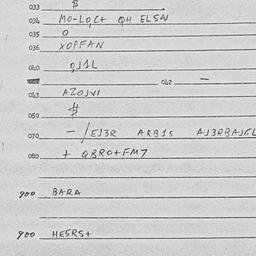 033 $
034 MO-LQC+ QH ELSN
035 O
036 XOPFAN
040 QJ1L
042 -
043 AZOJVI
050 $
070 - / EJ3R ARB1S AJ3RBAJEL
080 + QBRO+FM7
900 BARA
900 HE5RS+